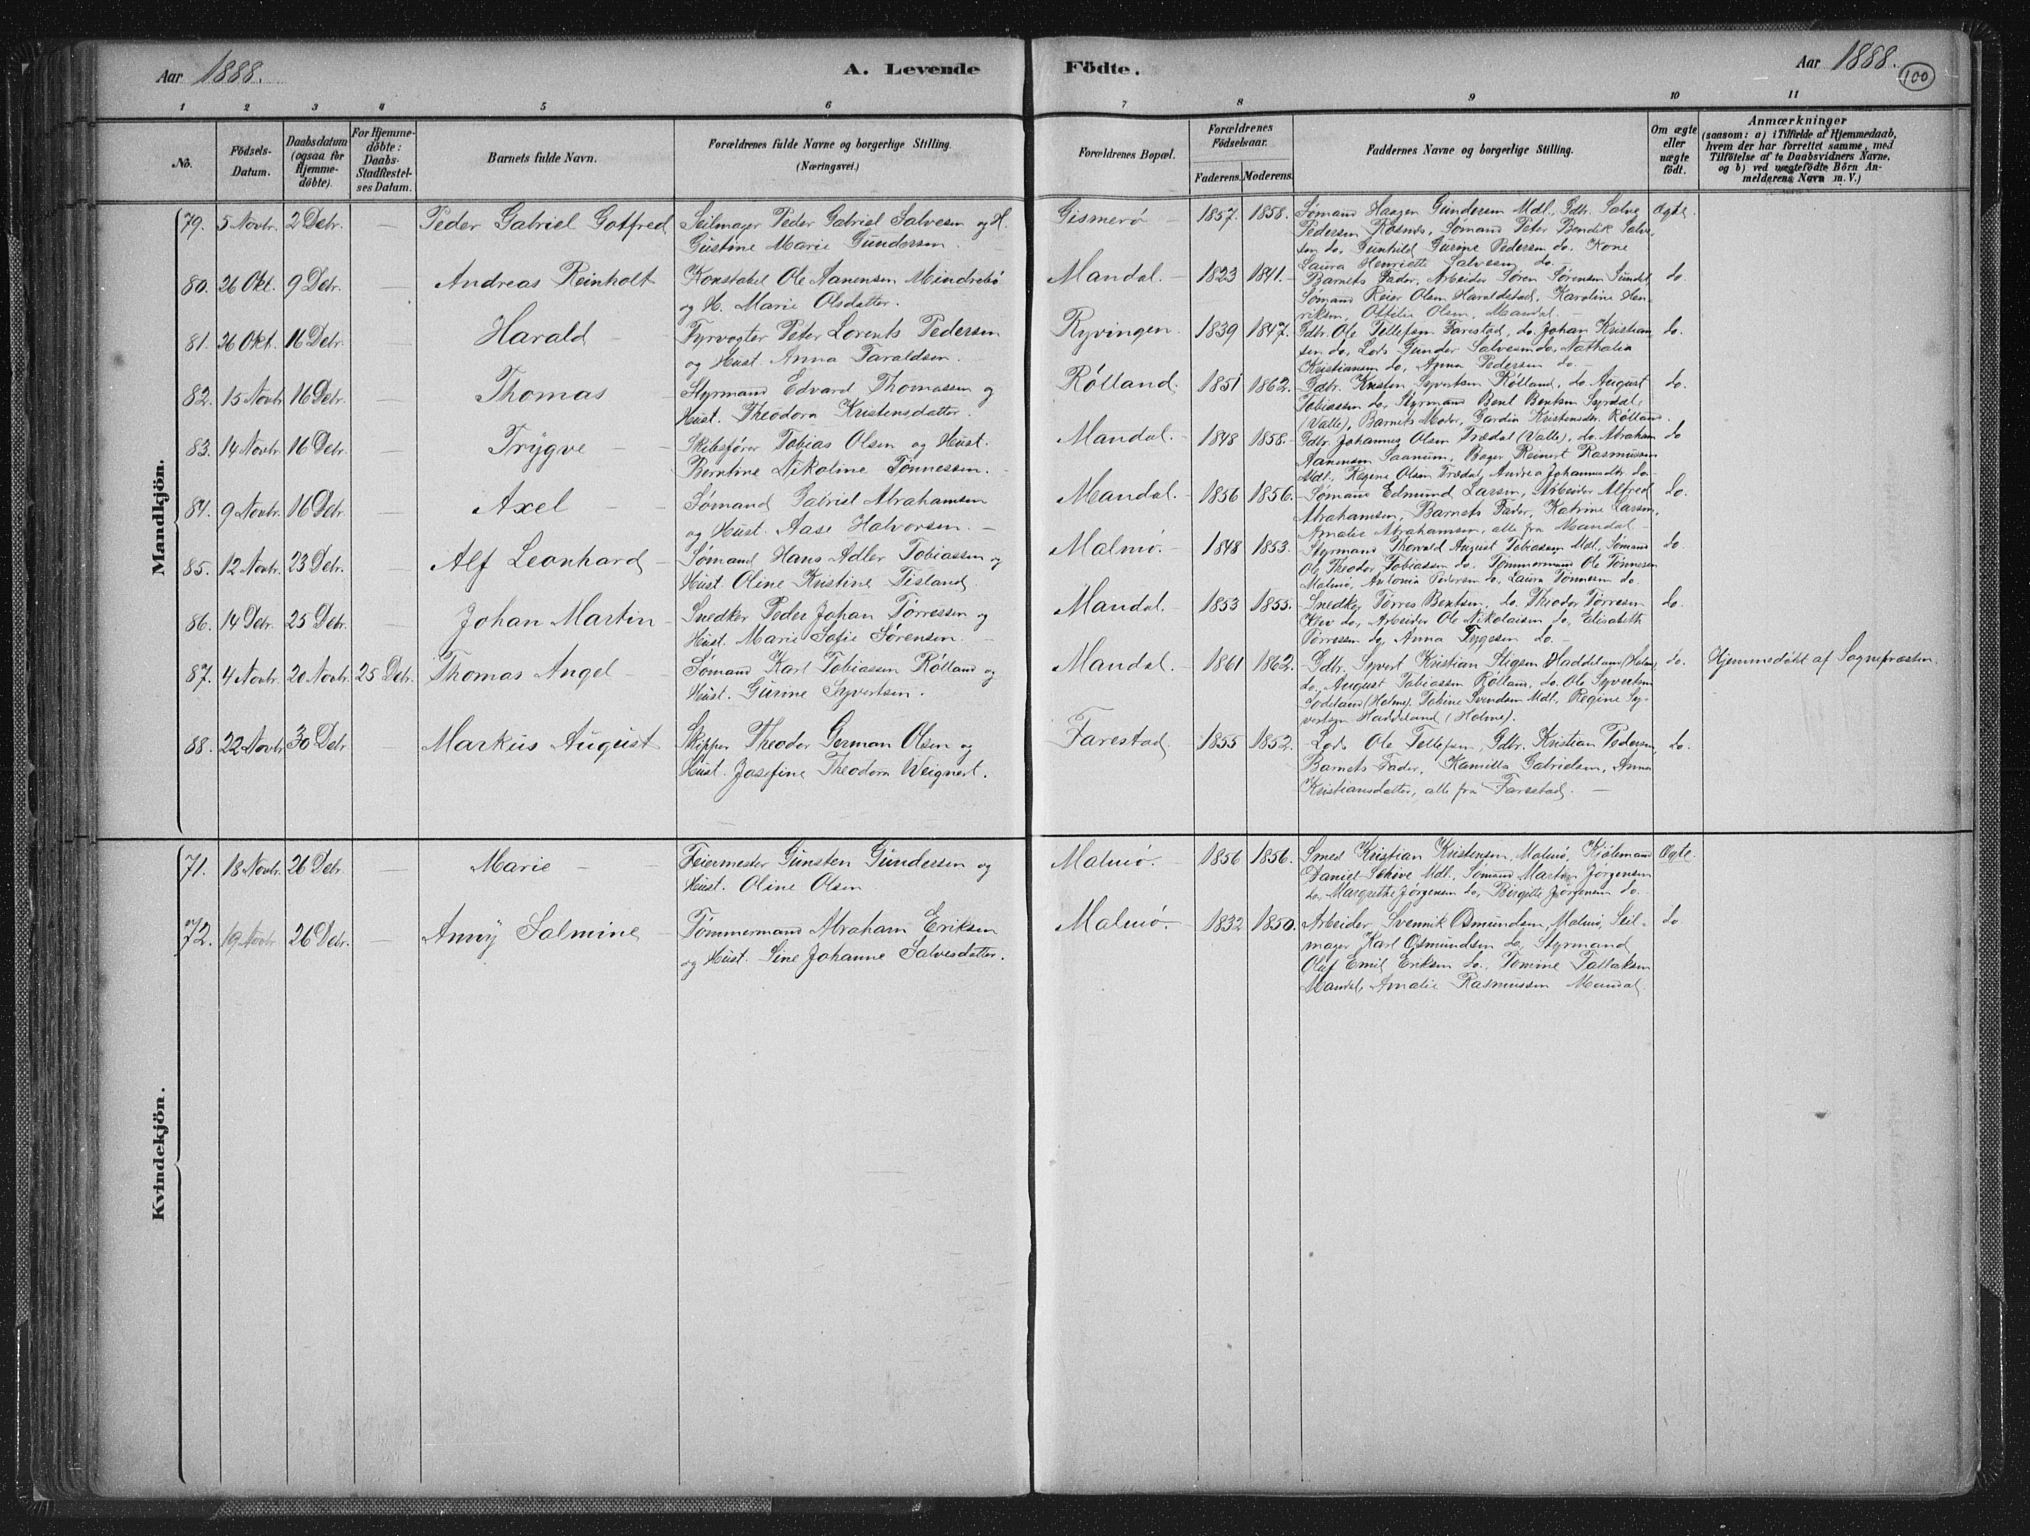 Aar 1888. A. Levende Fødte. Aar 1888. 100
1 2 3 4 5 6 7 8 9 10 11
No.
Födsels-Datum.
Daabsdatum (ogsaa for Hjemme-döbte).
For Hjemme-döbte: Daabs-Stadfæstel-ses Datum.
Barnets fulde Navn.
Forældrenes fulde Navne og borgerlige Stilling. (Næringsvei.)
Forældrenes Bopæl.
Forældrenes Födselsaar.
Faderens. Moderens.
Faddernes Navne og borgerlige Stilling.
Om ægte eller uægte födt.
Anmærkninger
(saasom: a) i Tilfælde af Hjemmedaab,
hvem der har forrettet samme, med
Tilföielse af to Daabsvidners Navne,
og b) ved uægtefödte Börn An-
melderens Navn m. V.)
Mandkjön.
79. 5 Novbr. 2 Debr. — Peder Gabriel Gotfred
Seilmager Peder Gabriel Salvesen og H.
Gustine Marie Gundersen.
Gismerø — 1857. 1858.
Sømand Haagen Gundersen Mdl., Gdbr. Salve
Pedersen Røsnes, Sømand Peter Bendik Salve-
sen do, Gunhild Gurine Pedersen do. Kone
Laura Henriette Salvesen do —
Ægte
80. 26 Okt. 9 Debr. — Andreas Reinholt
Konstabel Ole Aanensen Mindrebø
og H. Marie Olsdatter.
Mandal. — 1823 1841.
Barnets Fader, Arbeider Søren Sørensen Sundt
Sømand Reier Olsen Haraldstad, Karoline Hen-
riksen, Ottilie Olsen, Mandal —
do.
81. 26 Okt. 16 Debr. — Harald —
Fyrvogter Peter Lorents Pedersen
og Hust. Anna Taraldsen.
Ryvingen. 1839 1847.
Gdbr. Ole Tellefsen Farestad, do. Johan Kristian-
sen do, Lods Gunder Salvesen do, Nathalia
Kristiansen do, Anna Pedersen do.
do.
82. 15 Novbr. 16 Debr. — Thomas —
Styrmand Edvard Thomassen og
Hust. Theodora Kristensdatter.
Rølland. 1851 1862.
Gdbr. Kristen Syvertsen Rølland, do August
Tobiassen do, Styrmand Bent Bentsen Syrdal,
(Valle), Barnets Moder, Gardia Kristensdtr. Rølland.
do.
83. 14 Novbr. 16 Debr. — Trygve —
Skibsfører Tobias Olsen og Hust.
Berntine Nikoline Tønnessen. —
Mandal. — 1848 1858.
Gdbr. Johannes Olsen Trædal (Valle), do. Abraham
Aanensen Saanum, Bager Reinert Rasmussen
Mdl., Regine Olsen Trædal, Andrea Johannesdtr do.
do
84. 9 Novbr. 16 Debr. — Axel —
Sømand Gabriel Abrahamsen
og Hust. Aase Halvorsen. —
Mandal. 1856 1856.
Sømand Edmund Larsen, Arbeider Alfred
Abrahamsen, Barnets Fader, Katrine Larsen,
Amalie Abrahamsen, alle fra Mandal —
do.
85. 12 Novbr. 23 Debr. — Alf Leonhard —
Sømand Hans Adler Tobiassen og
Hust. Oline Kristine Tisland.
Malmø. — 1848 1853.
Styrmand Thorvald August Tobiassen Mdl., Sømand
Ole Theodor Tobiassen do. Tømmermand Ole Tønnesen
Malmø, Antonia Pedersen do, Laura Tønnesen do.
do.
86. 14 Debr. 25 Debr. — Johan Martin —
Snedker Peder Johan Tørressen og
Hust. Marie Sofie Sørensen. —
Mandal. — 1853 1855.
Snedker Tørres Bentsen, do. Theodor Tørresen
do, Arbeider Ole Nikolaisen do, Elisabeth
Tørressen do, Anna do. —
do.
87. 4 Novbr. 20 Novbr. 25 Debr. Thomas Angel —
Sømand Karl Tobiassen Rølland og
Hust. Gurine Syvertsen.
Mandal. — 1861 1862.
Gdbr. Syvert Kristian Stigsen Haddeland (Holme)
do. August Tobiassen Rølland, do. Ole Syvertsen
(Holme), Tobine Svendsen Mdl., Regine Sy-
vertsen Haddeland (Holme).
do.
Hjemmedøbt af Sognepræsten.
88. 22 Novbr. 30 Debr. — Markus August
Skipper Theodor German Olsen og
Hust. Josefine Theodora Weignert.
Farestad. 1855 1852.
Lods Ole Tellefsen, Gdbr. Kristian Pedersen,
Barnets Fader, Kamilla Gabrielsen, Anna
Kristiansdatter, alle fra Farestad. —
do.
Kvindekjön.
71. 18 Novbr. 26 Debr. — Marie —
Feiermester Gunsten Gundersen og
Hust. Oline Olsen
Malmø. — 1856 1856.
Smed Kristian Kristensen, Malmø, Kjøbmand
Daniel Mdl., Sømand Martin Jørgensen
do, Margrethe Jørgensen do, Birgitte Jørgensen do.
Ægte.
72. 19 Novbr. 26 Debr. — Anny Salmine —
Tømmermand Abraham Eriksen
og Hust. Sine Johanne Salvesdatter.
Malmø. — 1832 1850.
Arbeider Svennik Osmundsen, Malmø, Seil-
mager Karl Osmundsen do, Styrmand
Oluf Emil Eriksen do., Tomine Tallaksen
Mandal, Amalie Rasmussen Mandal
do.